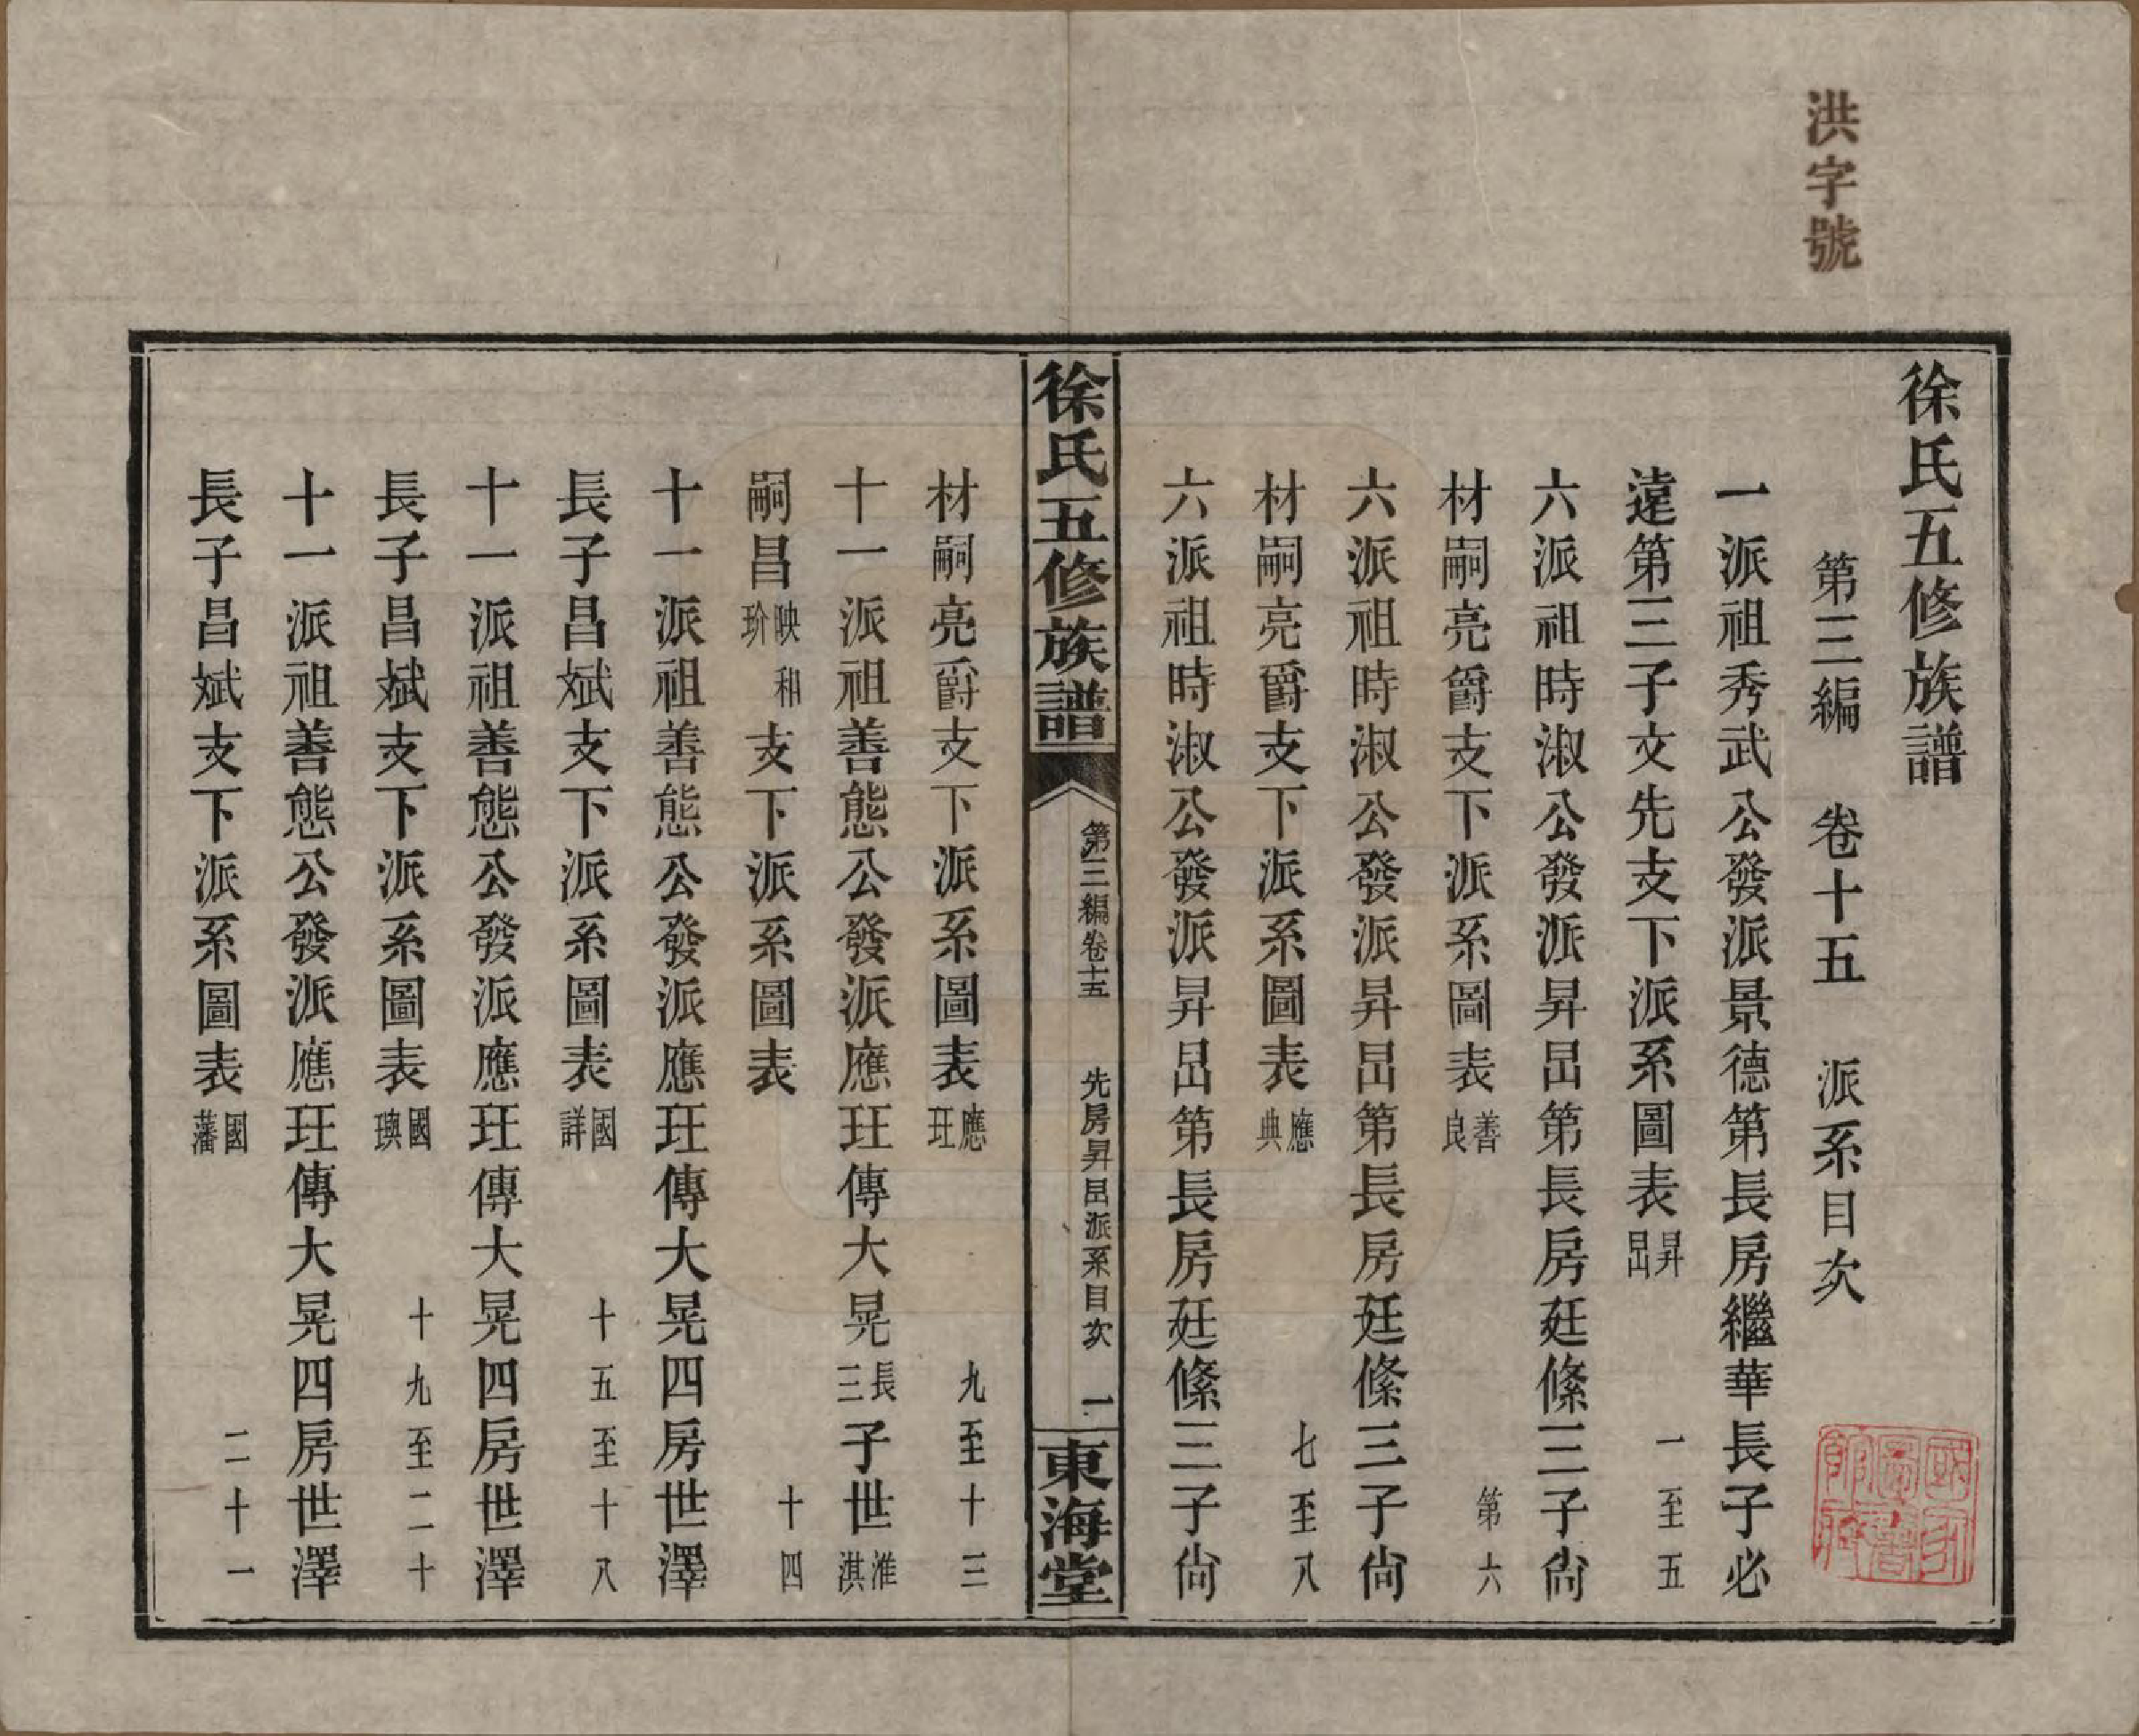 洪字號
徐氏五修族譜
第三編　卷十五　派系目次
一派祖秀武公發派景德第長房繼華長子必
達第三子文先支下派系圖表昇昌　一至五
六派祖時淑公發派昇昌第長房廷絛三子尙
材嗣亮爵支下派系圖表善良　第六
六派祖時淑公發派昇昌第長房廷絛三子尙
材嗣亮爵支下派系圖表應典　七至八
六派祖時淑公發派昇昌第長房廷絛三子尙
徐氏五修族譜　第三編卷十五　先房昇昌派系目次　一　東海堂
材嗣亮爵支下派系圖表應玨　九至十三
十一派祖善態公發派應玨傳大晃長三子世淮淇
嗣昌映和玠支下派系圖表　十四
十一派祖善態公發派應玨傳大晃四房世澤
長子昌斌支下派系圖表國詳　十五至十八
十一派祖善態公發派應玨傳大晃四房世澤
長子昌斌支下派系圖表國璵　十九至二十
十一派祖善態公發派應玨傳大晃四房世澤
長子昌斌支下派系圖表國藩　二十一